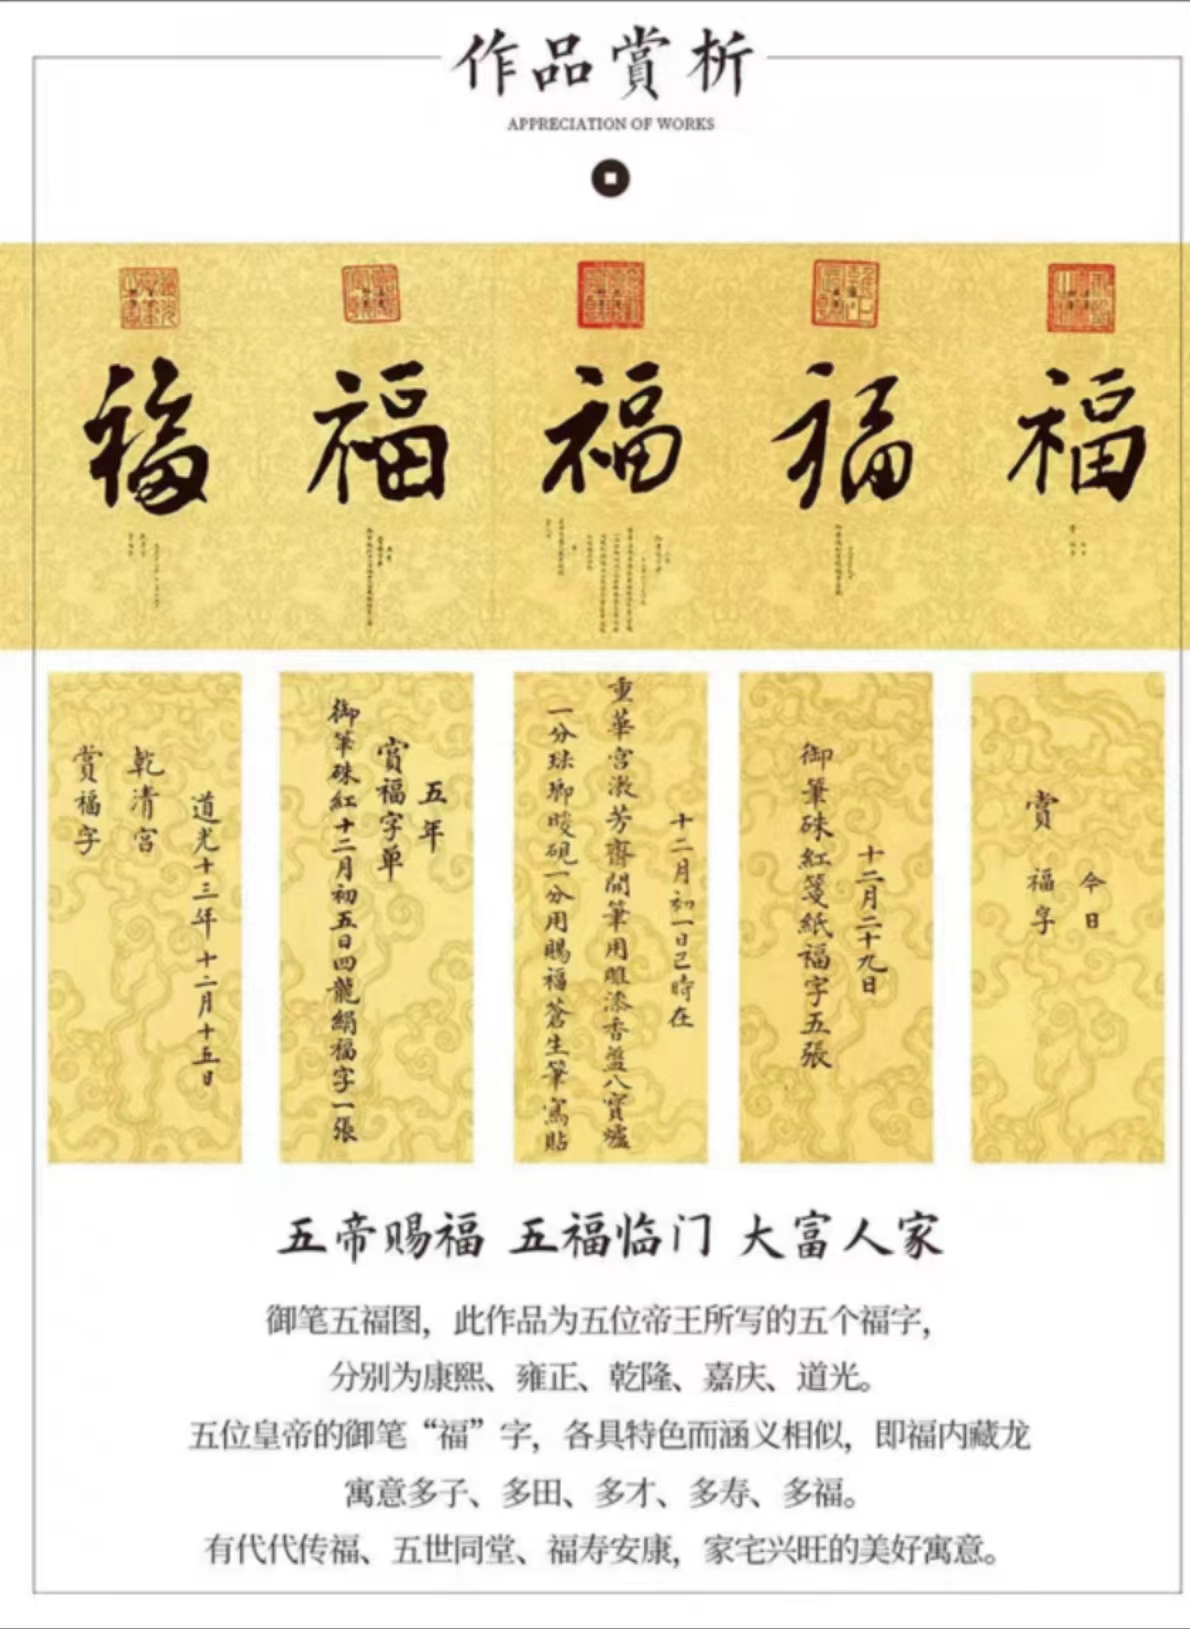 作品赏析
APPRECIATION OF WORKS
福 福 福 福 福
道光十三年十二月十五日
乾清宫
賞福字
五年
賞福字单
御筆硃紅十二月初五日四龍絹福字一張
十二月初一日己時在
重華宮漱芳齋開筆用雕漆香盤八寶爐
一分琺瑯暖硯一分用賜福蒼生筆寫貼
十二月二十九日
御筆硃紅箋紙福字五張
今日
賞福字
五帝赐福 五福临门 大富人家
御笔五福图，此作品为五位帝王所写的五个福字，
分别为康熙、雍正、乾隆、嘉庆、道光。
五位皇帝的御笔“福”字，各具特色而涵义相似，即福内藏龙
寓意多子、多田、多才、多寿、多福。
有代代传福、五世同堂、福寿安康，家宅兴旺的美好寓意。